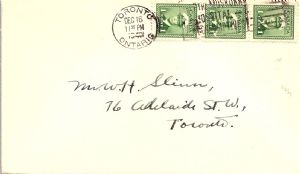 TORONTO
DEC 16
11 PM
ONTARIO
Mr. W. H. Slinn,
76 Adelaide St. W.,
Toronto.